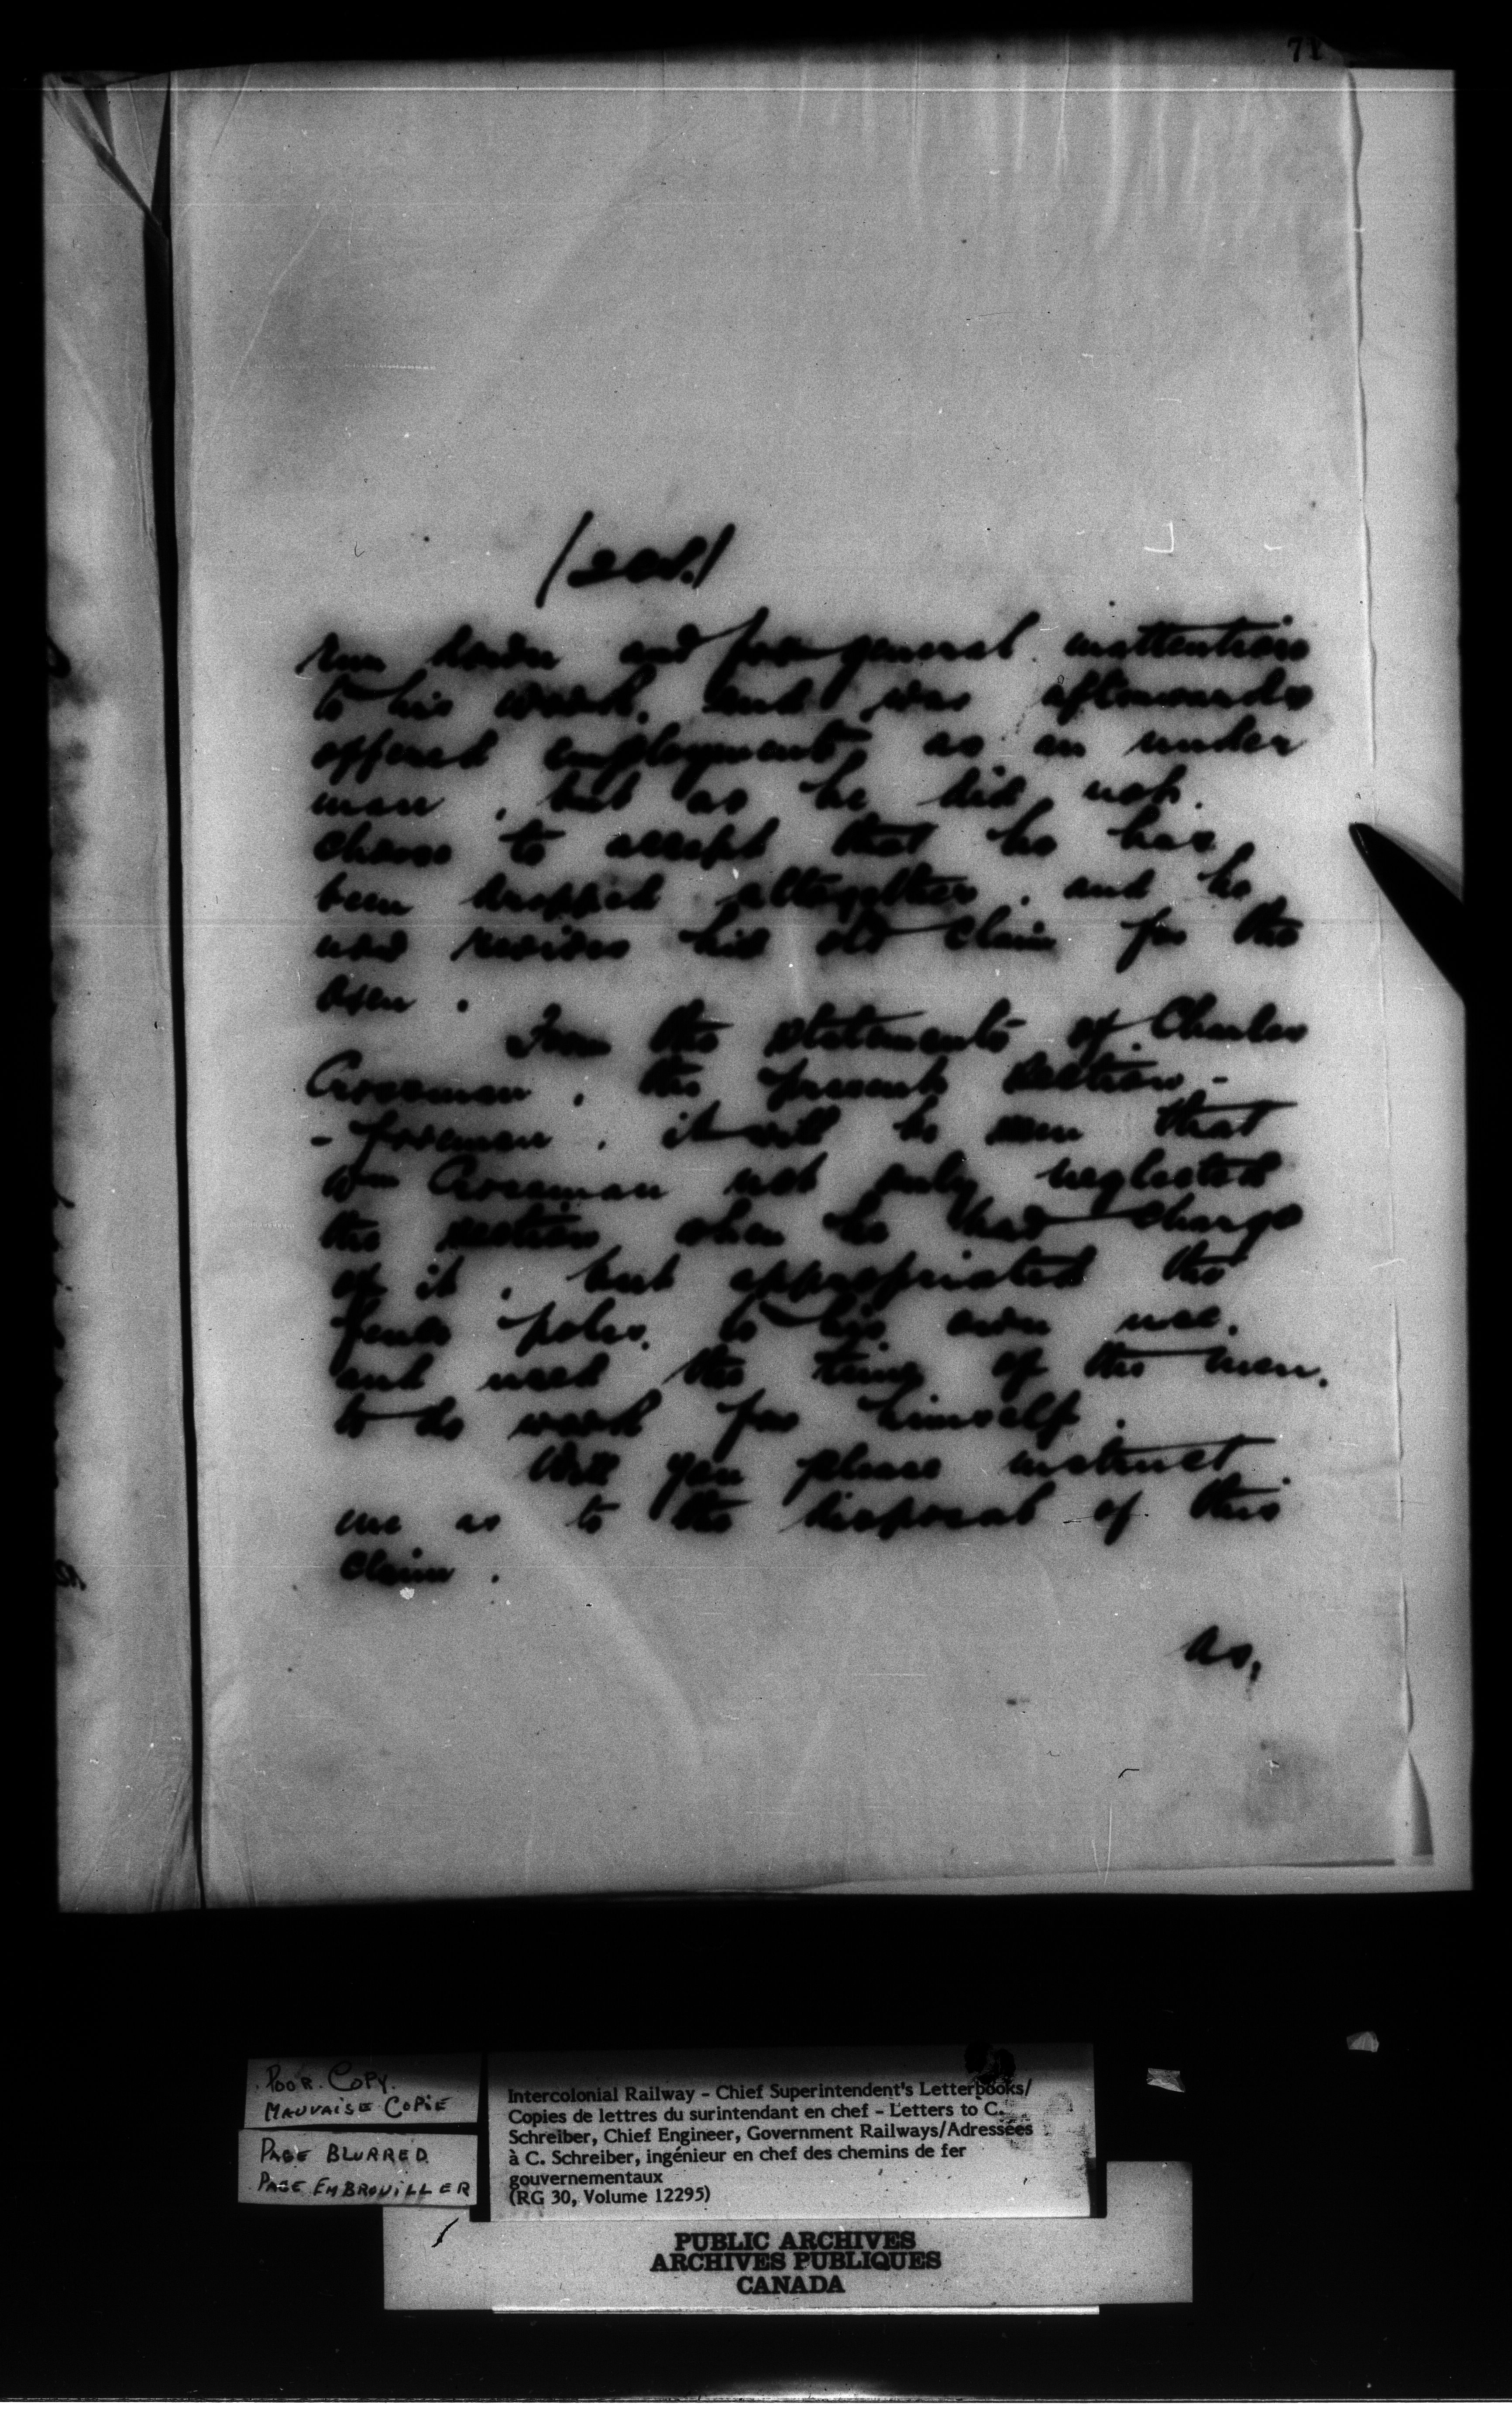 71
/2nd./
run down and for general inattention
to his work, and was afterwards
offered employment as an under
man, but as he did not
choose to accept that he has
been dropped altogether, and he
now revives his old claim for the
oxen.
From the statements of Charles
Crossman, the present section-
- foreman, it will be seen that
Wm Crossman not only neglected
the section when he had charge
of it, but appropriated the
fence poles, to his own use,
and used the time of the men,
to do work for himself.
Will you please instruct
me as to the disposal of this
claim.
POOR. COPY.
MAUVAISE COPIE
PAGE BLURRED
PAGE EMBROUILLER
Intercolonial Railway - Chief Superintendent's Letterbooks/
Copies de lettres du surintendant en chef - Letters to C.
Schreiber, Chief Engineer, Government Railways/Adressées
à C. Schreiber, ingénieur en chef des chemins de fer
gouvernementaux
(RG 30, Volume 12295)
PUBLIC ARCHIVES
ARCHIVES PUBLIQUES
CANADA